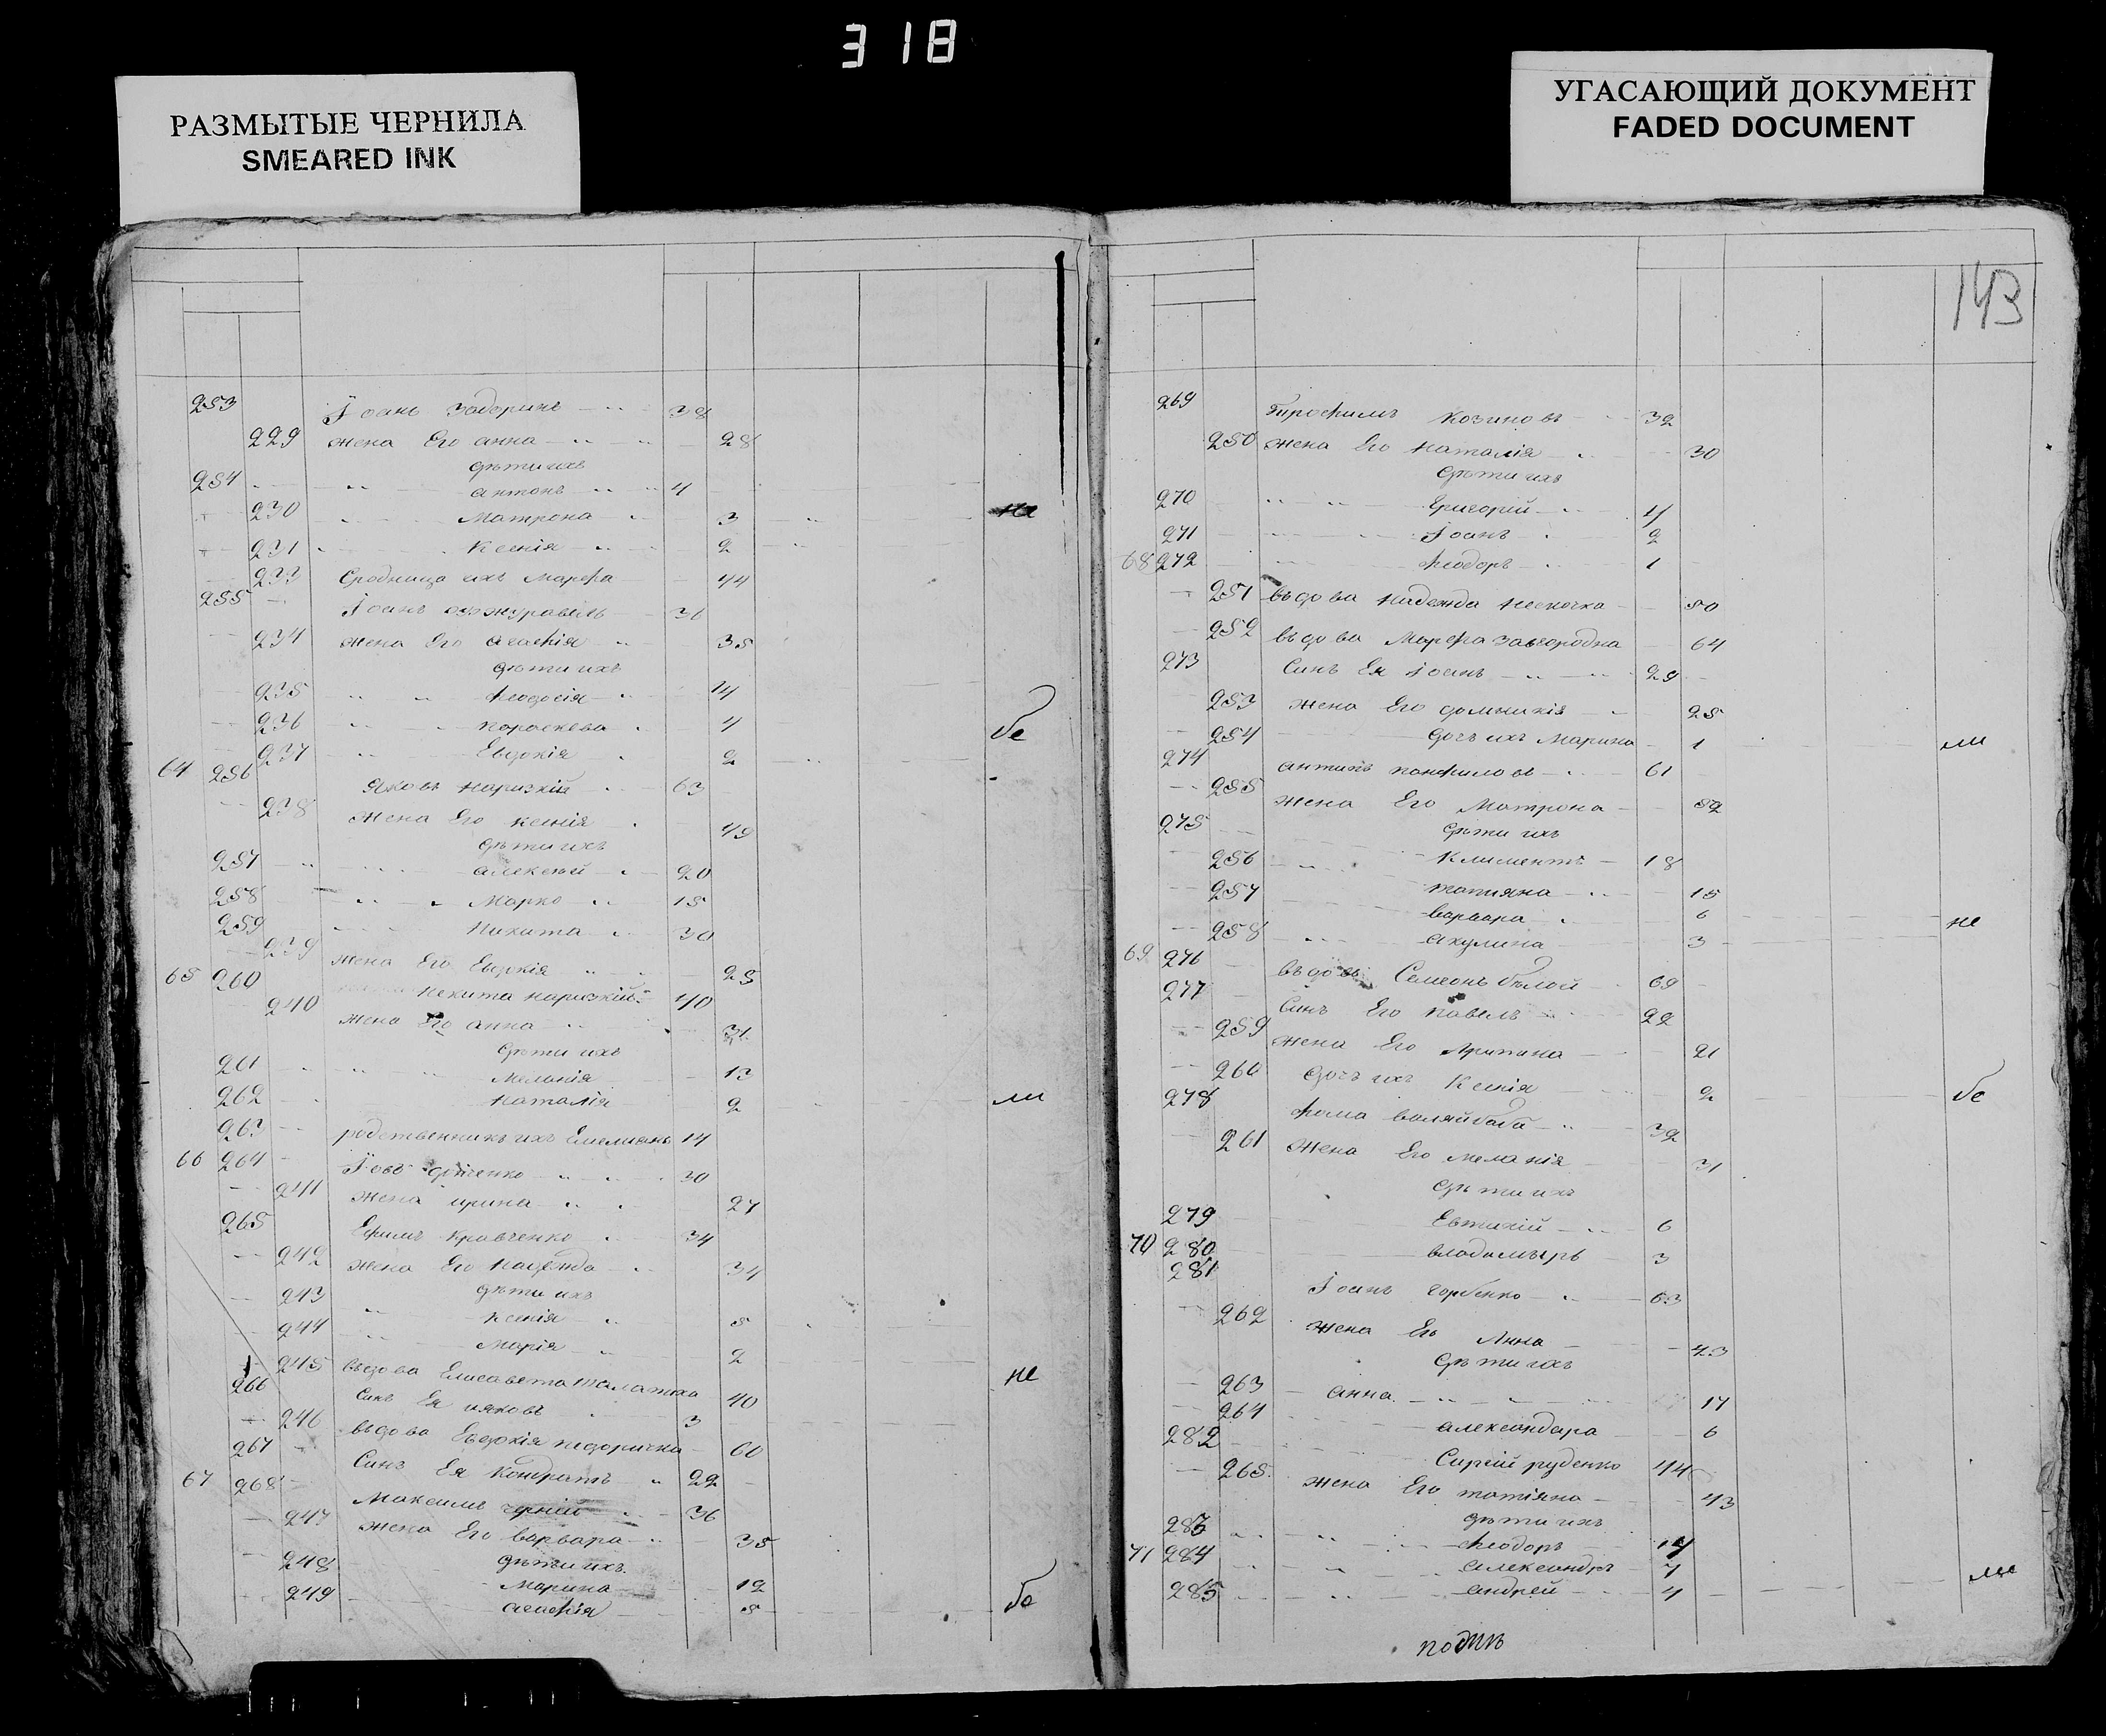 318
РАЗМЫТЫЕ ЧЕРНИЛА
SMEARED INK
УГАСАЮЩИЙ ДОКУМЕНТ
FADED DOCUMENT
253 Іоанъ Задоринъ 38
229 жена Его анна 28
дѣти ихъ
254 антонъ 4
230 Матрона 3
231 Ксенія 2
Сродница ихъ Марфа 44
255 Іоанъ 36
234 жена Его Агафія 35
дѣти ихъ
235 Феодосія 14
236 параскева 4 бе
237 Евдокія 2
64 256 Яковъ нарижній 63
238 жена Его ксенія 49
дѣти ихъ
257 алексій 20
258 Марко 15
259 Никита 30
239 жена Его Евдокія 25
65 260 Никита нарижній 40
240 жена Его анна 31
дѣти ихъ
261 13
262 наталія 2 ли
263 родственникъ ихъ Емелианъ 14
66 264 Іовъ 30
241 жена ирина 27
265 Ефимъ кравченко 34
242 жена Его надежда 34
243 дѣти ихъ
ксенія 5
244 Марія 2
245 въдова Елисавета 40 не
266 Синъ Ея ияковъ 3
246 въдова Евдокія 60
267 Синъ Ея Кондратъ 22
67 268 Максимъ черній 36
247 жена Его варвара 35
248 дѣти ихъ
Марина 12
249 агафія 5 бе
143
269 трофимъ козиновъ 32
250 жена Его наталія 30
дѣти ихъ
270 Григорій 4
271 Іоанъ 2
68 272 Феодоръ 1
251 въдова надежда 50
252 въдова Марфа завгородна 64
273 Синъ Ея Іоанъ 29
253 жена Его домникія 25
254 дочь ихъ Марина 1 ли
274 антипъ панфиловъ 61
255 жена Его Матрона 52
275 дѣти ихъ
256 Климентъ 18
257 татияна 15
варвара 6 не
258 акулина 3
69 276 въдовъ Семеонъ бѣлой 69
277 Синъ Его павелъ 22
259 жена Его 21
260 дочь ихъ Ксенія 2 бе
278 Фома валяйбаба 32
261 жена Его меланія 31
дѣти ихъ
279 Евтихій 6
70 280 владымыръ 3
281 Іоанъ горбенко 63
262 жена Его Анна 43
дѣти ихъ
263 анна 17
264 александара 6
282 Сергій руденко 44
265 жена Его татіяна 43
дѣти ихъ
283 Феодоръ 14
71 284 александръ 7
285 андрей 4 ли